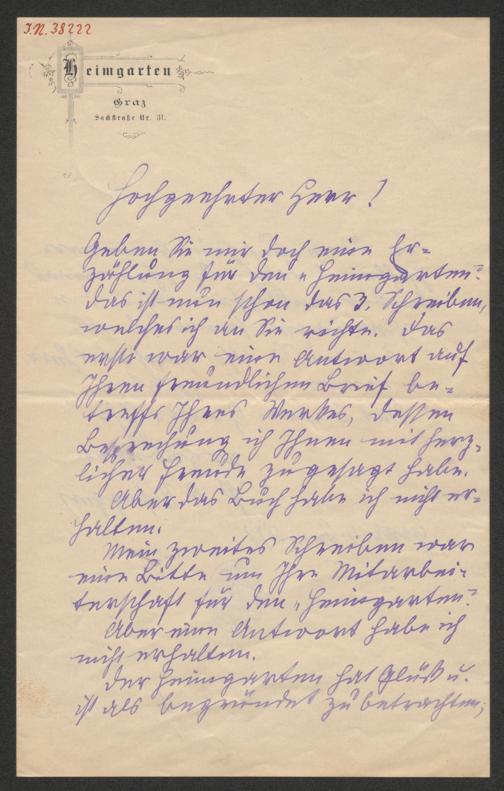 J.N. 38222
Heimgarten
Graz
Sackstraße Nr. 31.
Hochgeehrter Herr!
Geben Sie mir doch eine Er-
zählung für den „Heimgarten“.
Das ist nun schon das 3. Schreiben,
welches ich an Sie richte. Das
erste war eine Antwort auf
Ihren freundlichen Brief be-
treffs Ihres Werkes, dessen
Besprechung ich Ihnen mit herz-
licher Freude zugesagt habe.
Aber das Buch habe ich nicht er-
halten.
Mein zweites Schreiben war
eine Bitte um Ihre Mitarbei-
terschaft für den „Heimgarten“.
Aber eine Antwort habe ich
nicht erhalten.
Der Heimgarten hat Glück u.
ist als begründet zu betrachten;